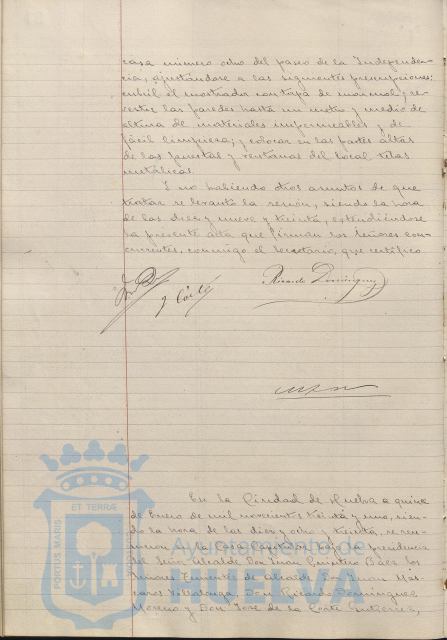 casa número ocho del paseo de la Independen-
cia, ajustándose a las siguientes prescripciones:
cubrir el mostrador con tapa de marmol; re-
vestir las paredes hasta un metro y medio de
altura de materiales impermeables y de
fácil limpieza; y colocar en las partes altas
de las puertas y ventanas del local telas
metálicas.
Y no habiendo otros asuntos de que
tratar se levantó la sesión, siendo la hora
de las diez y nueve y treinta, extendiéndose
la presente acta que firman los señores con-
currentes, conmigo el Secretario, que certifico
Ricardo Dominguez
En la Ciudad de Huelva a quince
de Enero de mil novecientos treinta y uno, sien-
do la hora de las diez y ocho y treinta, se reu-
nieron en la Casa Capitular bajo la presidencia
del Señor Alcalde Don Juan Quintero Báez los
Señores Tenientes de Alcalde Don Juan Mas-
caros Vallalonga, Don Ricardo Dominguez
Moreno y Don José de la Corte Gutiérrez,
PORTUS MARIS
ET TERRÆ
Ayuntamiento de
HUELVA